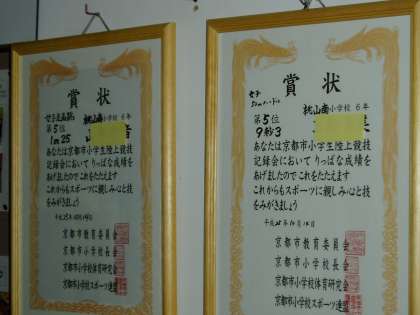 賞状
女子走高跳
桃山南小学校 6年
第5位
1m25
あなたは京都市小学生陸上競技
記録会において りっぱな成績を
あげましたので これをたたえます
これからもスポーツに親しみ心と技
をみがきましょう
平成25年10月19日
京都市教育委員会
京都市小学校長会
京都市小学校体育研究会
京都市小学校スポーツ連盟
賞状
女子
50mハードル
桃山南小学校 6年
第5位
9秒3
あなたは京都市小学生陸上競技
記録会において りっぱな成績を
あげましたので これをたたえます
これからもスポーツに親しみ心と技
をみがきましょう
京都市教育委員会
京都市小学校長会
京都市小学校体育研究会
京都市小学校スポーツ連盟